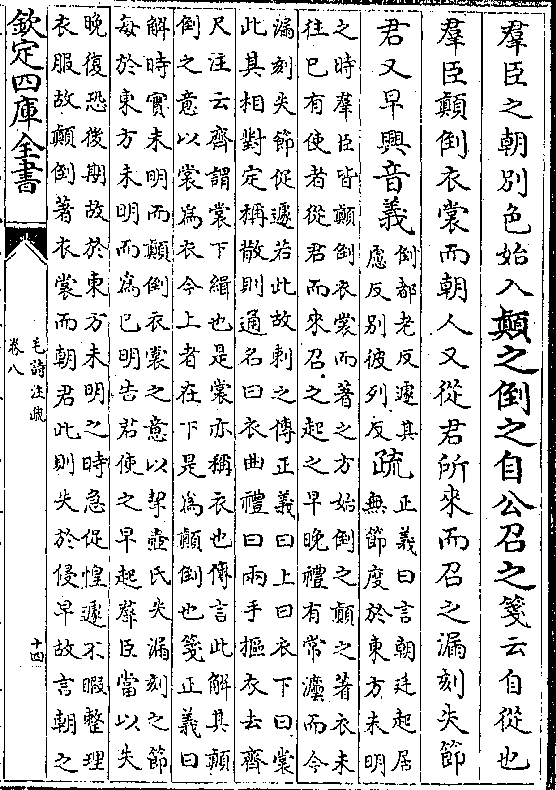 羣臣之朝別色始入顛之倒之自公召之箋云自從也
羣臣顛倒衣裳而朝人又從君所來而召之漏刻失節
君又早興音義倒都老反遽其
慮反别彼列反疏正義曰言朝廷起居
無節度於東方未明
之時羣臣皆顛倒衣裳而著之方始倒之顛之著衣未
往已有使者從君而來召之起之早晚禮有常灋而今
漏刻失節促遽若此故刺之傳正義曰上曰衣下曰裳
此其相對定稱散則通名曰衣曲禮曰兩手摳衣去齊
尺注云齊謂裳下緝也是裳亦稱衣也傳言此解其顛
倒之意以裳為衣今上者在下是為顛倒也箋正義曰
解時實未明而顛倒衣裳之意以挈壺氏失漏刻之節
每於東方未明而為已明告君使之早起羣臣當以失
晚復恐後期故於東方未明之時急促惶遽不暇整理
衣服故顛倒著衣裳而朝君此則失於侵早故言朝之
欽定四庫全書
毛詩注疏
卷八
十四